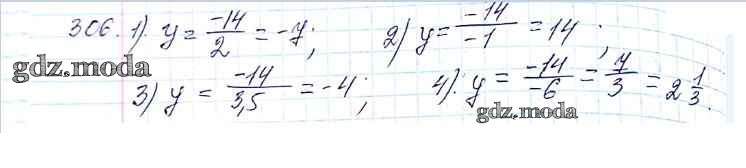 306. 1). y = -14/2 = -7; 2) y = -14/-1 = 14;
gdz.moda
3) y = -14/3,5 = -4; 4). y = -14/-6 = 7/3 = 2 1/3.
gdz.moda